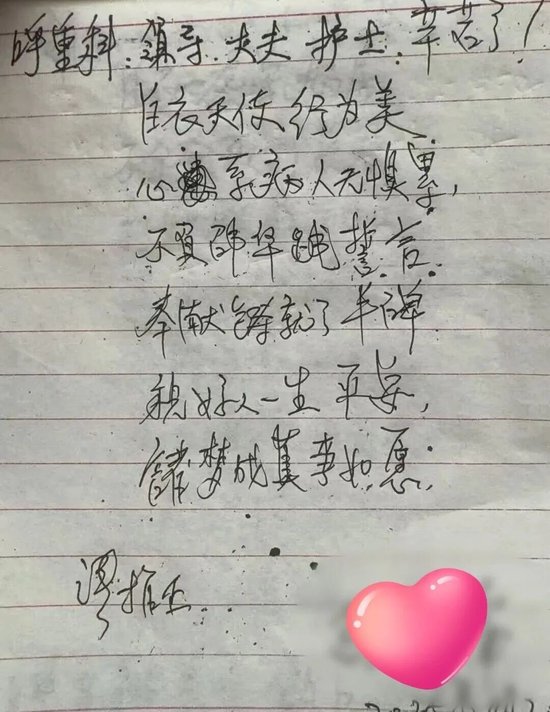 呼重科:领导.大夫 护士.辛苦了!
白衣天使行为美
心系病人无惧累,
不负韶华践誓言.
奉献铸就了丰碑
祝好人一生平安,
诸梦成真事如愿.